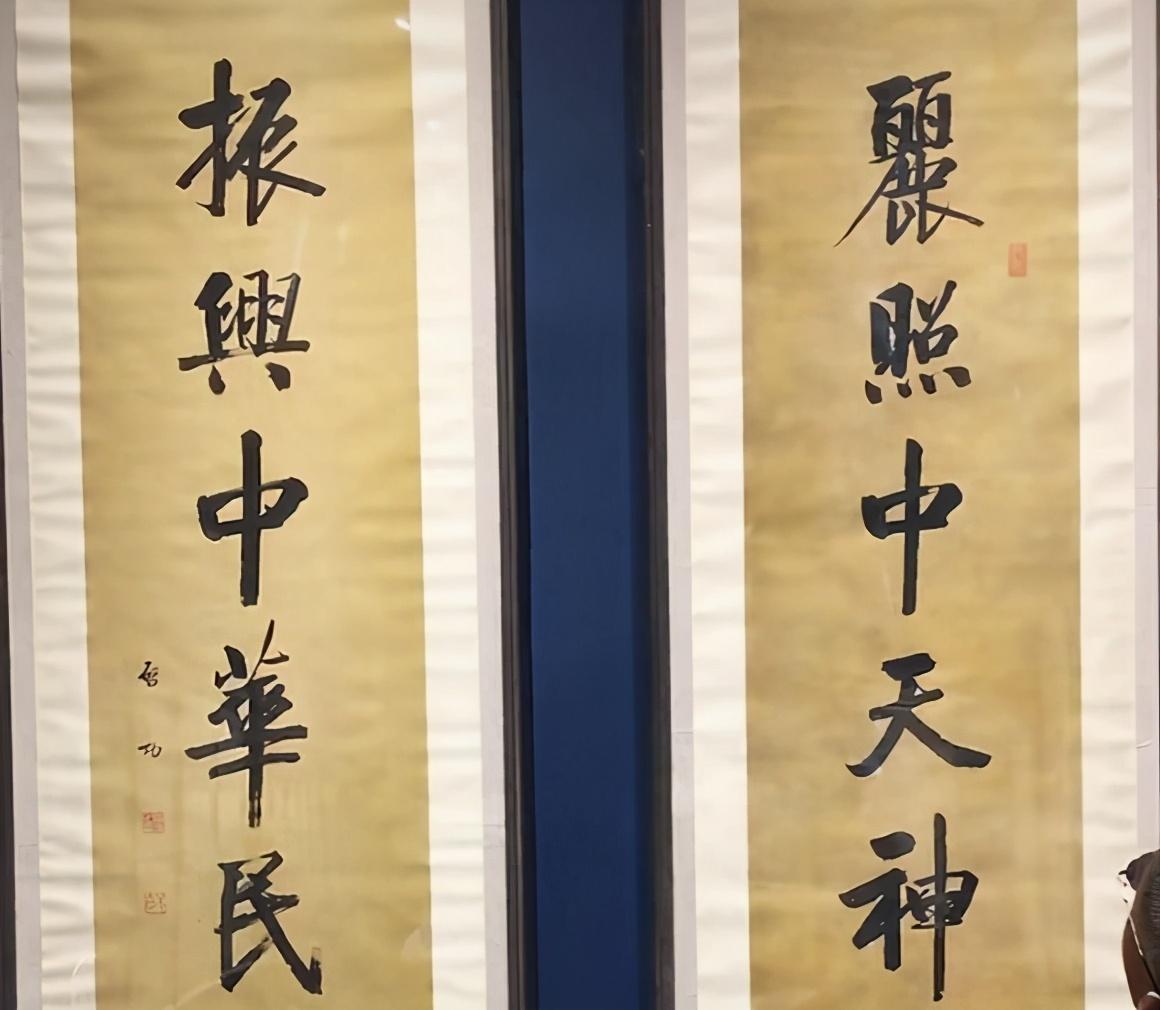 麗照中天神
振興中華民
啓功